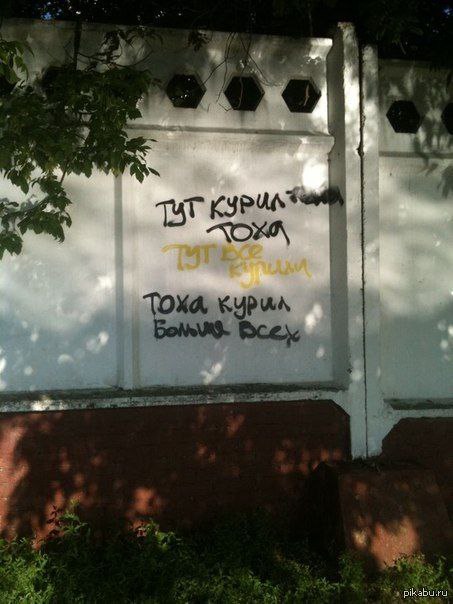 ТУТ КУРИЛ
ТОХА
ТУТ ВСЕ
КУРИЛИ
ТОХА КУРИЛ
Больше ВСЕХ
pikabu.ru